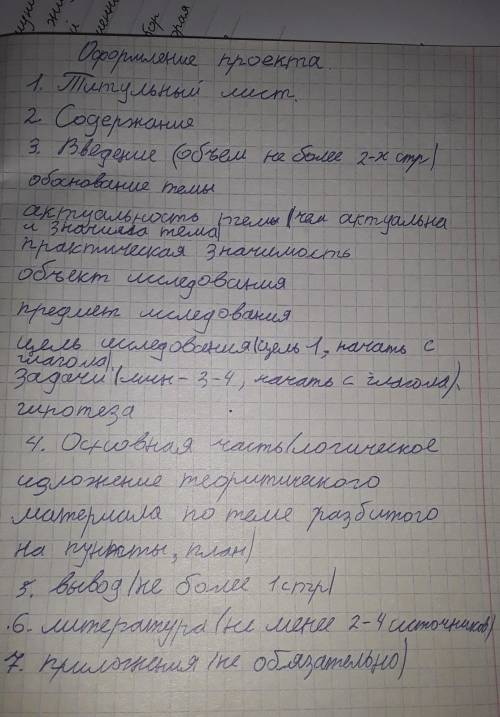 Оформление проекта.
1. Титульный лист.
2. Содержание
3. Введение (объем не более 2-х стр)
обоснование темы
актуальность темы (чем актуальна
и значима тема)
практическая значимость
объект иследования
предмет иследования
цель иследования (цель 1, начать с
глагола)
задачи (мин - 3-4, начать с глагола).
гипотеза
4. Основная часть (логическое
изложение теоритического
материала по теме разбитого
на пункты, план)
5. вывод (не более 1 стр)
6. литература (не менее 2-4 источников)
7. приложения (не обязательно)